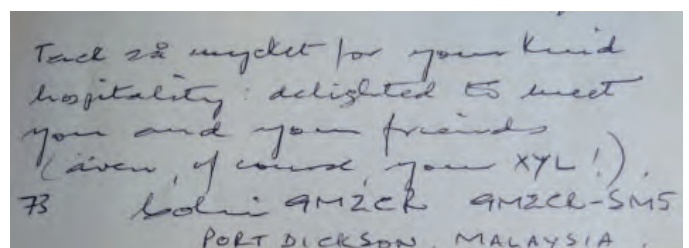 Tack så mycket for your kind
hospitality: delighted to meet
you and your friends
(även, of course, your XYL!).
73 9M2CR 9M2CR-SM5
PORT DICKSON, MALAYSIA